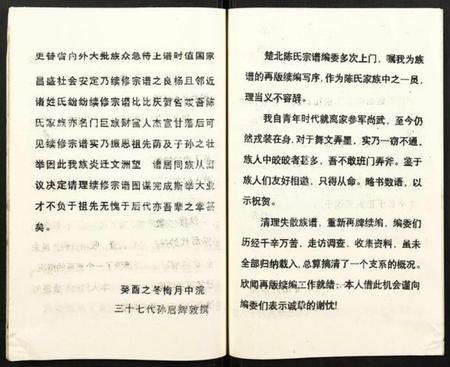 更替省内外大批族众急待上谱时值国家
昌盛社会安定乃续修宗谱之良杨且邻近
诸姓氏纷纷续修宗谱比比皆竣吾陈
氏家族亦名门巨族财富人本宜甘落后可
见续修宗谱实乃缅恩祖先荫及子孙之壮
举因此我族炎迁文洲望 谱居同族从出
议决定请理续修宗谱图谋完成斯举大业
才不负于祖先无愧于后代亦吾辈之
矣。
癸酉之冬梅月中浣
三十七代孙启舞敦撰
楚北陈氏宗谱编委多次上门，嘱我为族
谱的再版续编写序，作为陈氏家族中之一员，
理当义不容辞。
我自青年时代就离家参军尚武，至今仍
然戎装在身，对于舞文弄墨，实乃一窃不通，
族人中皎皎者甚多，吾不敢班门弄斧。鉴于
族人们友好相邀，只得从命。略书数语，以
示祝贺。
清理失散族谱，重新再牌续编，编委们
历经千辛万苦，走访调查，收集资料，虽未
全部归纳载入，总算搞清了一个支系的概况。
欣闻再版续编工作就绪：本人借此机会谨向
编委们表示诚挚的谢忱！